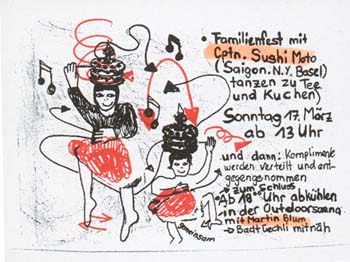 • Familienfest mit
Cptn. Sushi Moto
(Saigon. N.Y. Basel)
tanzen zu Tee
und Kuchen)
Sonntag 17. März
ab 13 Uhr
und dann: Komplimente
werden verteilt und ent-
gegengenommen
→ zum Schluss
Ab 18⁰⁰ Uhr abkühlen
in der Outdoorsauna
mit Martin Blum
→ Badtüechli mitnäh
gemeinsam